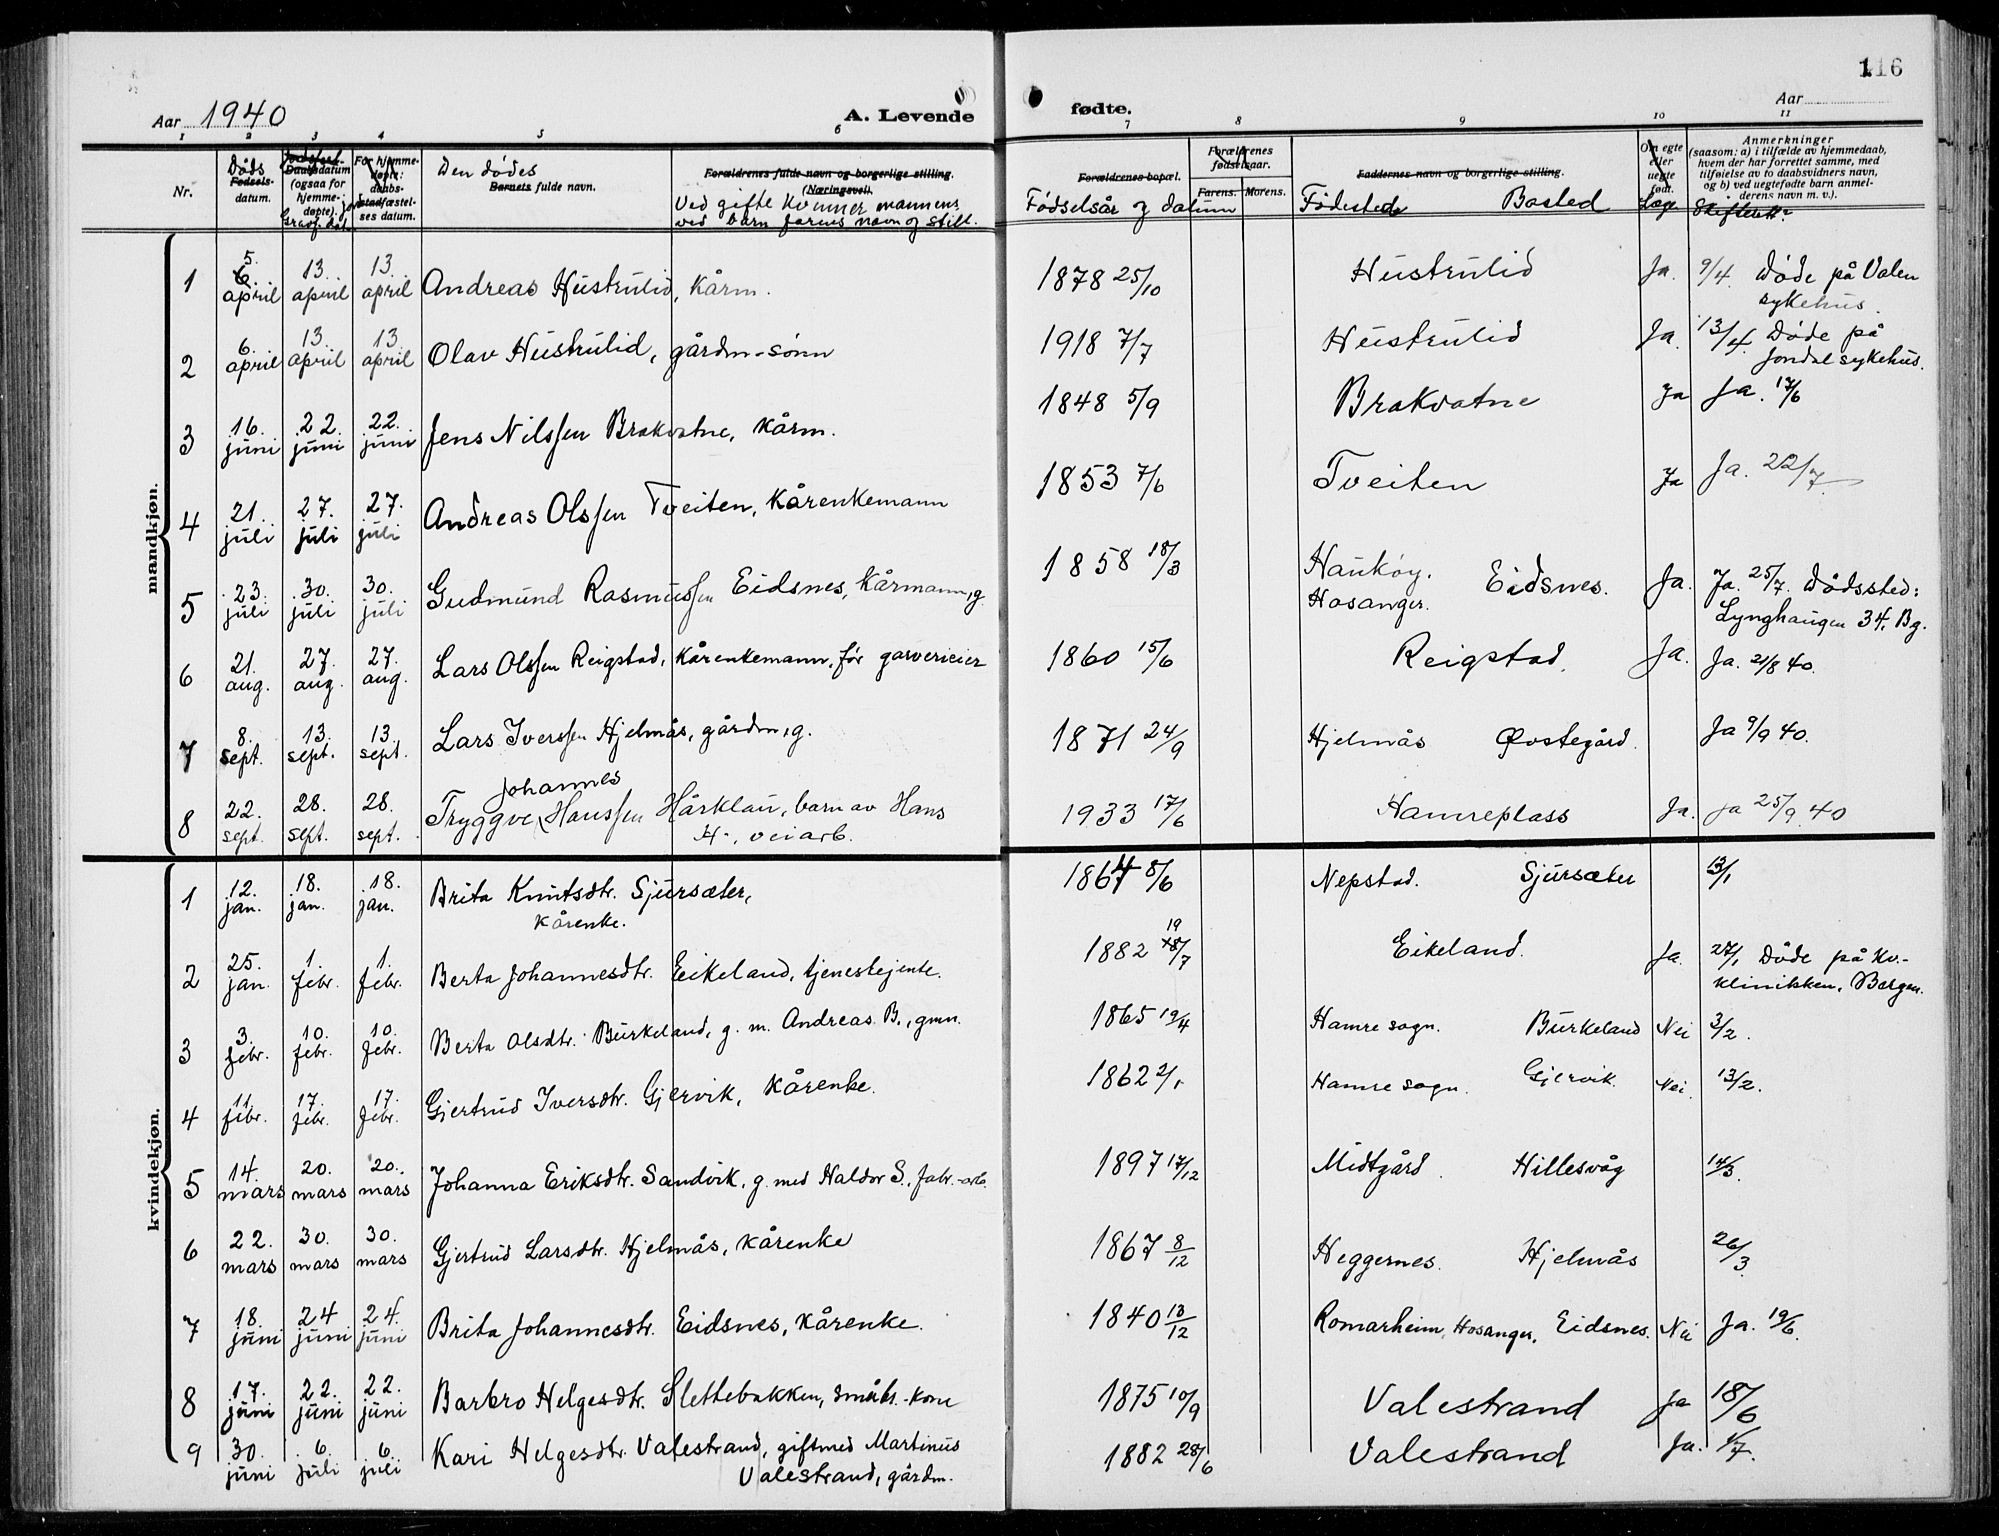 116
Aar 1940
A. Levende
fødte.
Aar
1 2 3 4 5 6 7 8 9 10 11
Nr.
Døds
Fødsels-
datum.
Jordfest.
Daabsdatum
(ogsaa for
hjemme-
døpte).
For hjemme-
døpte:
daabs-
stadfæstel-
ses datum.
Den dødes
Barnets fulde navn.
Forældrenes fulde navn og borgerlige stilling.
(Næringsvei).
Ved gifte kvinner mannens
ved barn farens navn og still.
Forældrenes bopæl.
Fødselsår og datum
Forældrenes
fødselsaar.
Farens. Morens.
Faddernes navn og borgerlige stilling.
Fødested Bosted
Om egte
eller
uegte
født.
Læge
Anmerkninger
(saasom: a) i tilfælde av hjemmedaab,
hvem der har forrettet samme, med
tilføielse av to daabsvidners navn,
og b) ved uegtefødte barn anmel-
derens navn m. v.).
Skifterett
mandkjøn.
1 5. 6. april 13. april 13. april Andreas Hustrulid, kårm. 1878 25/10 Hustrulid Ja. 9/4 Døde på Valen
sykehus.
2 6. april 13. april 13. april Olav Hustrulid, gårdm-sønn 1918 7/7 Hustrulid Ja. 13/4. Døde på
Jondal sykehus.
3 16. juni 22. juni 22. juni Jens Nilssen Brakvatne, kårm. 1848 5/9 Brakvatne Ja Ja. 17/6
4 21. juli 27. juli 27. juli Andreas Olssen Tveiten, kårenkemann 1853 7/6 Tveiten Ja Ja. 22/7
5 23. juli 30. juli 30. juli Gudmund Rasmussen Eidsnes, kårmann, g. 1858 18/3 Haukøy. Hosanger. Eidsnes. Ja. Ja. 25/7. Dødssted:
Lynghaugen 34, Bg.
6 21. aug. 27. aug. 27. aug. Lars Olssen Reigstad, kårenkemann, før garverieier 1860 15/6 Reigstad. Ja. Ja. 21/8 40.
7 8. sept. 13. sept. 13. sept. Lars Iverssen Hjelmås, gårdm, g. 1871 24/9 Hjelmås Øvstegård. Ja 9/9 40.
Johannes
8 22. sept. 28. sept. 28. sept. Tryggve Hanssen Hårklau, barn av Hans 1933 17/6 Hamreplass Ja. Ja 25/9. 40
H-, veiarb.
kvindekjøn.
1 12. jan. 18. jan. 18. jan. Brita Knutsdtr. Sjursæter, 1864 8/6 Nepstad. Sjursæter 13/1
kårenke.
2 25. jan. 1. febr. 1. febr. Berta Johannesdtr. Eikeland, tjenestejente. 1882 19/7 Eikeland. Ja. 27/1 Døde på Kv.-
klinikken, Bergen.
3 3. febr. 10. febr. 10. febr. Berta Olsdtr. Burkeland, g. m. Andreas B., gmn. 1865 19/4 Hamre sogn. Burkeland Nei 3/2.
4 11. febr. 17. febr. 17. febr. Gjertrud Iversdtr. Gjervik, kårenke. 1862 2/1 Hamre sogn. Gjervik. Nei. 13/2.
5 14. mars 20. mars 20. mars Johanna Eriksdtr. Sandvik, g. med Haldor S., fabr.-arb. 1897 17/12 Midtgård. Hillesvåg 14/3.
6 22. mars 30. mars 30. mars Gjertrud Larsdtr. Hjelmås, kårenke 1867 8/12 Heggernes. Hjelmås 26/3.
7 18. juni 24 juni 24. juni Brita Johannesdtr. Eidsnes, kårenke. 1840 13/12 Romarheim, Hosanger, Eidsnes. Nei Ja. 19/6.
8 17. juni 22. juni 22. juni Barbro Helgesdtr. Slettebakken, småbr.-kone 1875 10/9 Valestrand Ja 18/6
9 30. juni 6. juli 6. juli Kari Helgesdtr. Valestrand, gift med Martinus 1882 28/6 Valestrand Ja. 1/7.
Valestrand, gårdm.